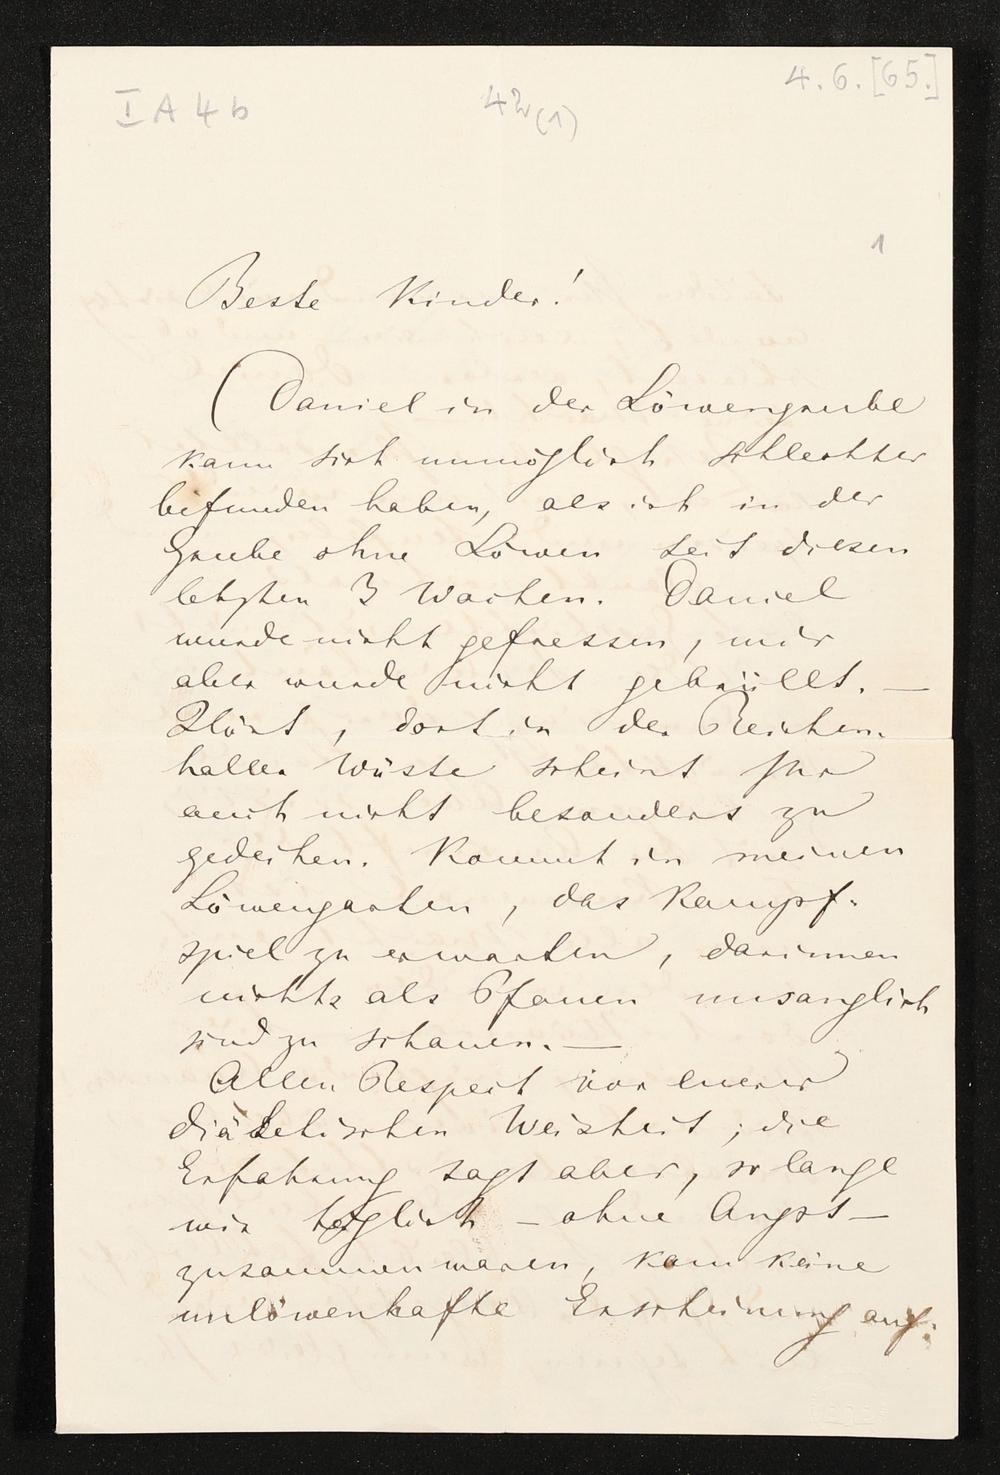 I A 4 b
42(1)
4.6.[65.]
1
Beste Kinder!
Daniel in der Löwengrube
kann sich unmöglich schlechter
befunden haben, als ich in der
Grube ohne Löwen seit diesen
letzten 3 Wochen. Daniel
wurde nicht gefressen, mir
aber wurde nicht gebrüllt. —
Hört, dort in der Reichen-
haller Wüste scheint Ihr
auch nicht besonders zu
gedeihen. Kommt in meinen
Löwengarten, das Kampf-
spiel zu erwarten, darinnen
nichts als Pfauen unsanglich
sind zu schauen. —
Allen Respect vor euerer
diätetischen Weisheit; die
Erfahrung sagt aber, so lange
wir täglich – ohne Angst –
zusammen waren, kam keine
unlöwenhafte Erscheinung auf.